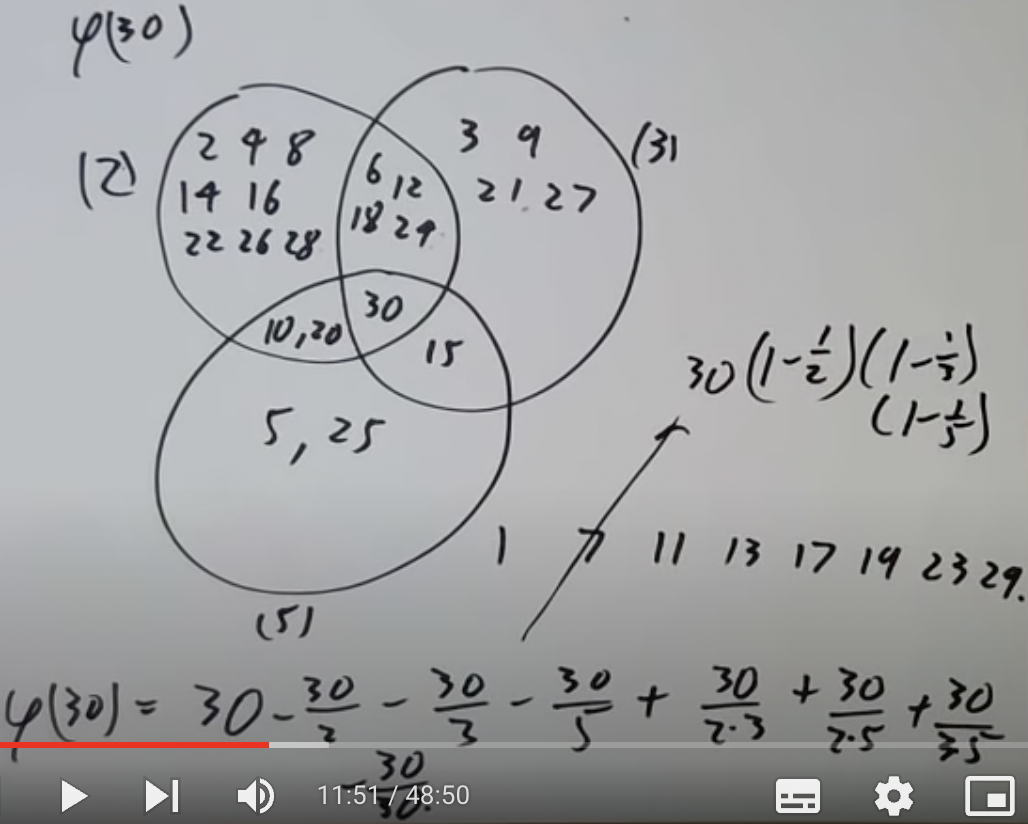 φ(30)
(2)
2 4 8
14 16
22 26 28
6 12
18 24
3 9
21 27
(3)
10, 20
30
15
5, 25
(5)
30(1-1/2)(1-1/3)
(1-1/5)
1 7 11 13 17 19 23 29.
φ(30) = 30 - 30/2 - 30/3 - 30/5 + 30/2·3 + 30/2·5 + 30/3·5
- 30/30.
11:51 / 48:50